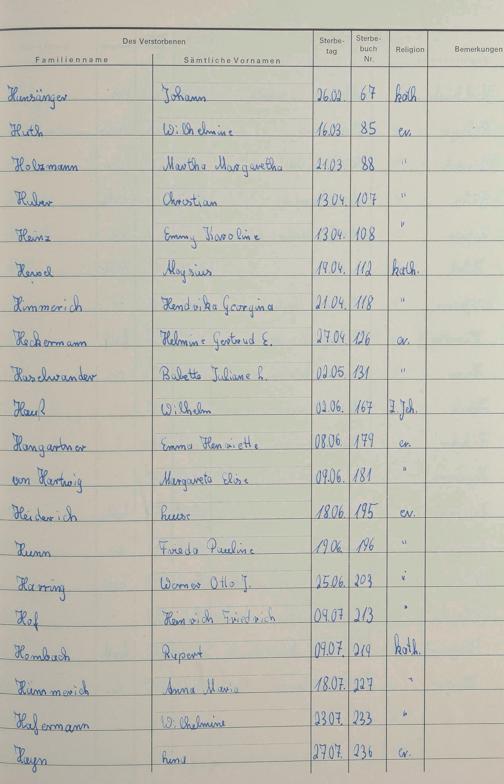 Des Verstorbenen Sterbe- Sterbe-
Familienname Sämtliche Vornamen tag buch Nr. Religion Bemerkungen
Hunsänger Johann 26.02. 67 kath
Huth Wilhelmine 16.03. 85 ev.
Holzmann Martha Margaretha 21.03 88 "
Huber Christian 13 04. 107 "
Heinz Emmy Karoline 13 04. 108 "
Aloysius 19.04. 112 kath.
Himmerich Hendrika Georgina 21.04. 118 "
Heckermann Helmine Gertrud E. 27.04 126 ev.
Haschwander Babette Juliane L. 02.05 131 "
Hauß Wilhelm 02.06. 167 Z. Jeh.
Hangartner Emma Henriette 08.06. 179 ev.
von Hartwig Margareta Elise 09.06. 181 "
Heiderich Luise 18.06. 195 ev.
Hunn Frieda Pauline 19 06. 196 "
Harring Werner Otto J. 25.06. 203 "
Hof Heinrich Friedrich 04.07 213 "
Hombach Rupert 09.07. 219 kath.
Hümmerich Anna Maria 18.07. 227 "
Hafermann Wilhelmine 23 07. 233 "
Hayn Lina 27 07. 236 ev.